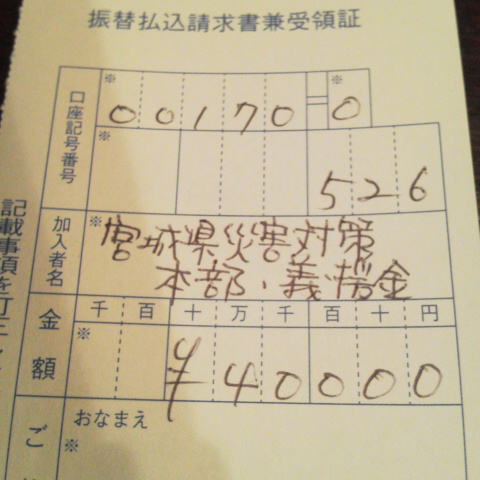 振替払込請求書兼受領証
口座記号番号
※
00170
※
0
※
526
加入者名
※
宮城県災害対策
本部・義援金
金額
千百十万千百十円
※
¥40000
おなまえ
※
ご
記載事項を訂正し